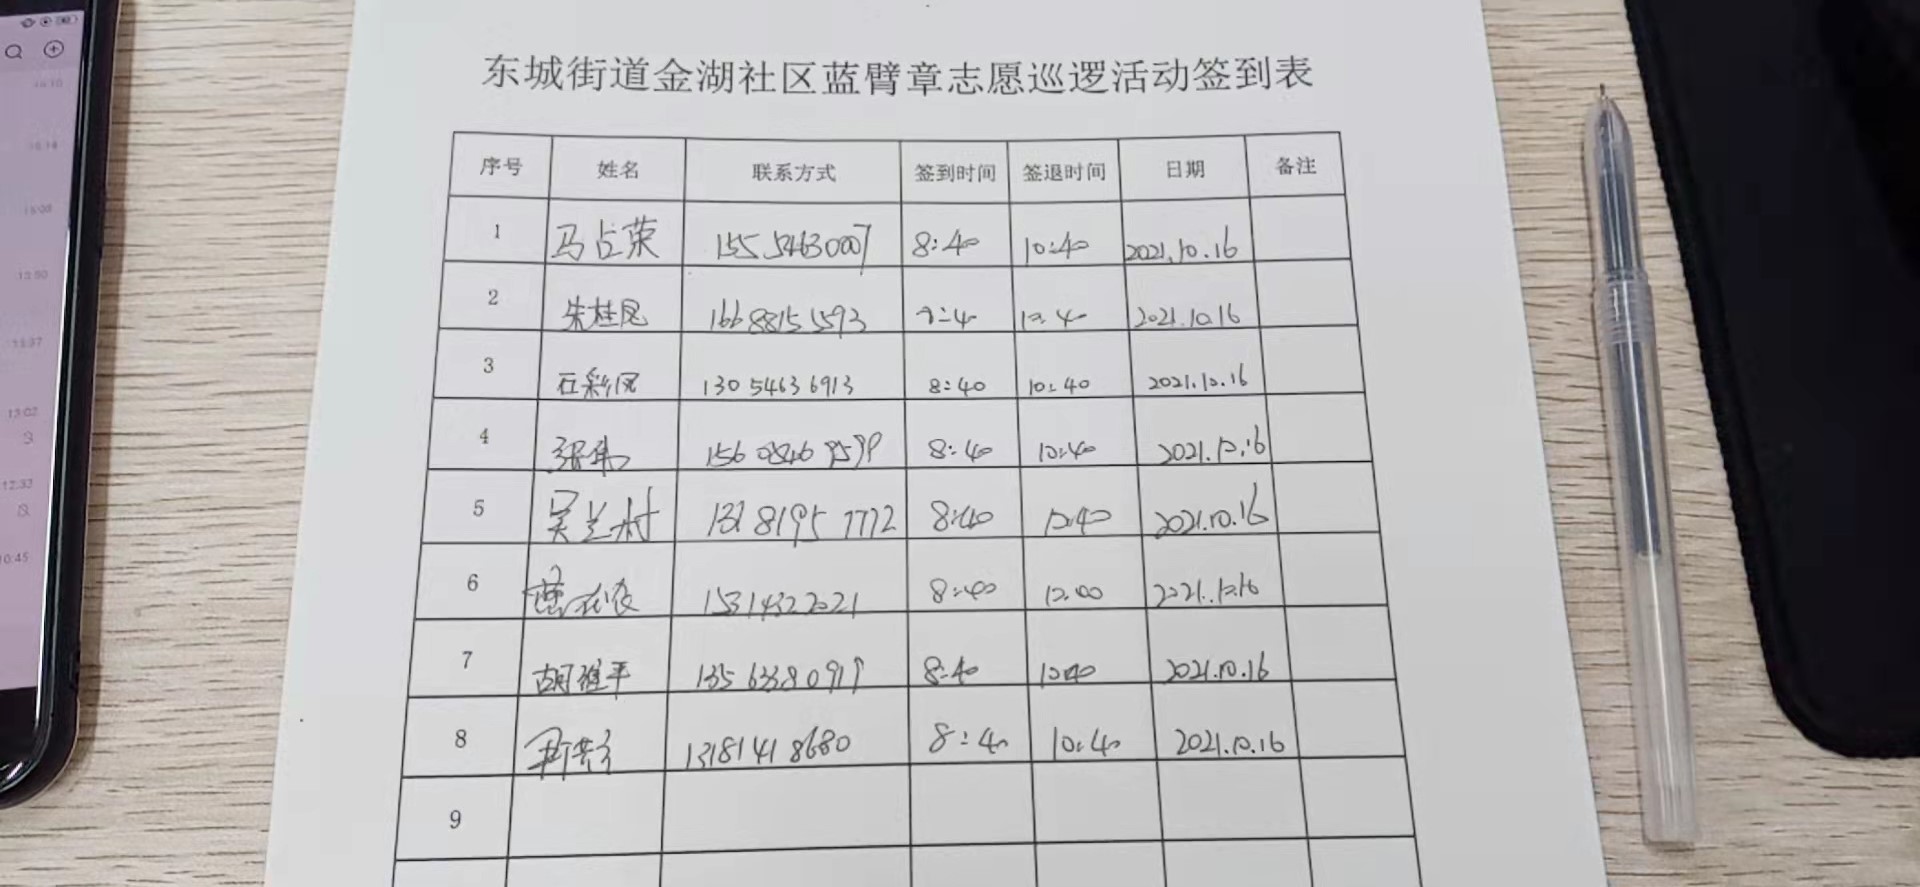 东城街道金湖社区蓝臂章志愿巡逻活动签到表
序号 姓名 联系方式 签到时间 签退时间 日期 备注
1 马占荣 15554630007 8:40 10:40 2021.10.16
2 朱桂凤 16688155593 10.40 2021.10.16
3 石彩凤 13054636913 8:40 10:40 2021.10.16
4 张伟 8:40 10:40 2021.10.16
5 吴兰村 8:40 10:40 2021.10.16
6 15314322021 8:40 2021.10.16
7 胡雅平 8:40 10:40 2021.10.16
8 13181418680 8:40 10:40 2021.10.16
9
13:02
12:33
10:45